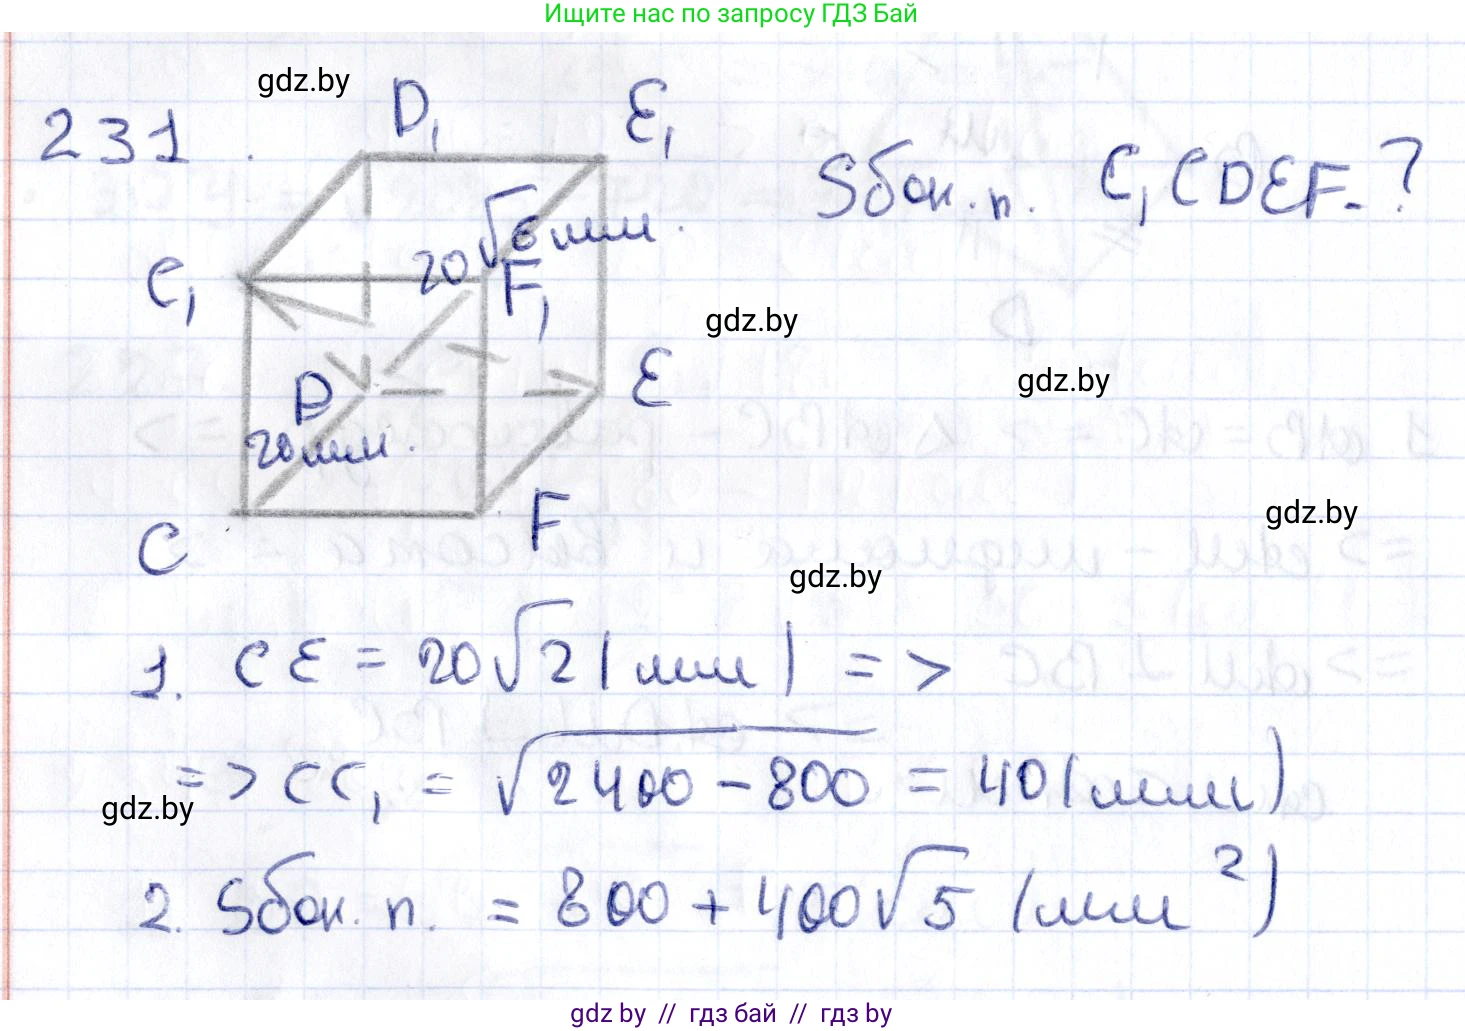 Ищите нас по запросу ГДЗ Бай
gdz.by
231.
D₁
E₁
Sбок.п. C₁CDEF-?
20√6 мм.
C₁
F₁
gdz.by
gdz.by
D
E
20 мм.
gdz.by
C
F
gdz.by
1. CE = 20√2 (мм) =>
=> CC₁ = √2400 - 800 = 40 (мм)
gdz.by
2. Sбок. п. = 800 + 400√5 (мм²)
gdz.by // гдз бай // гдз by